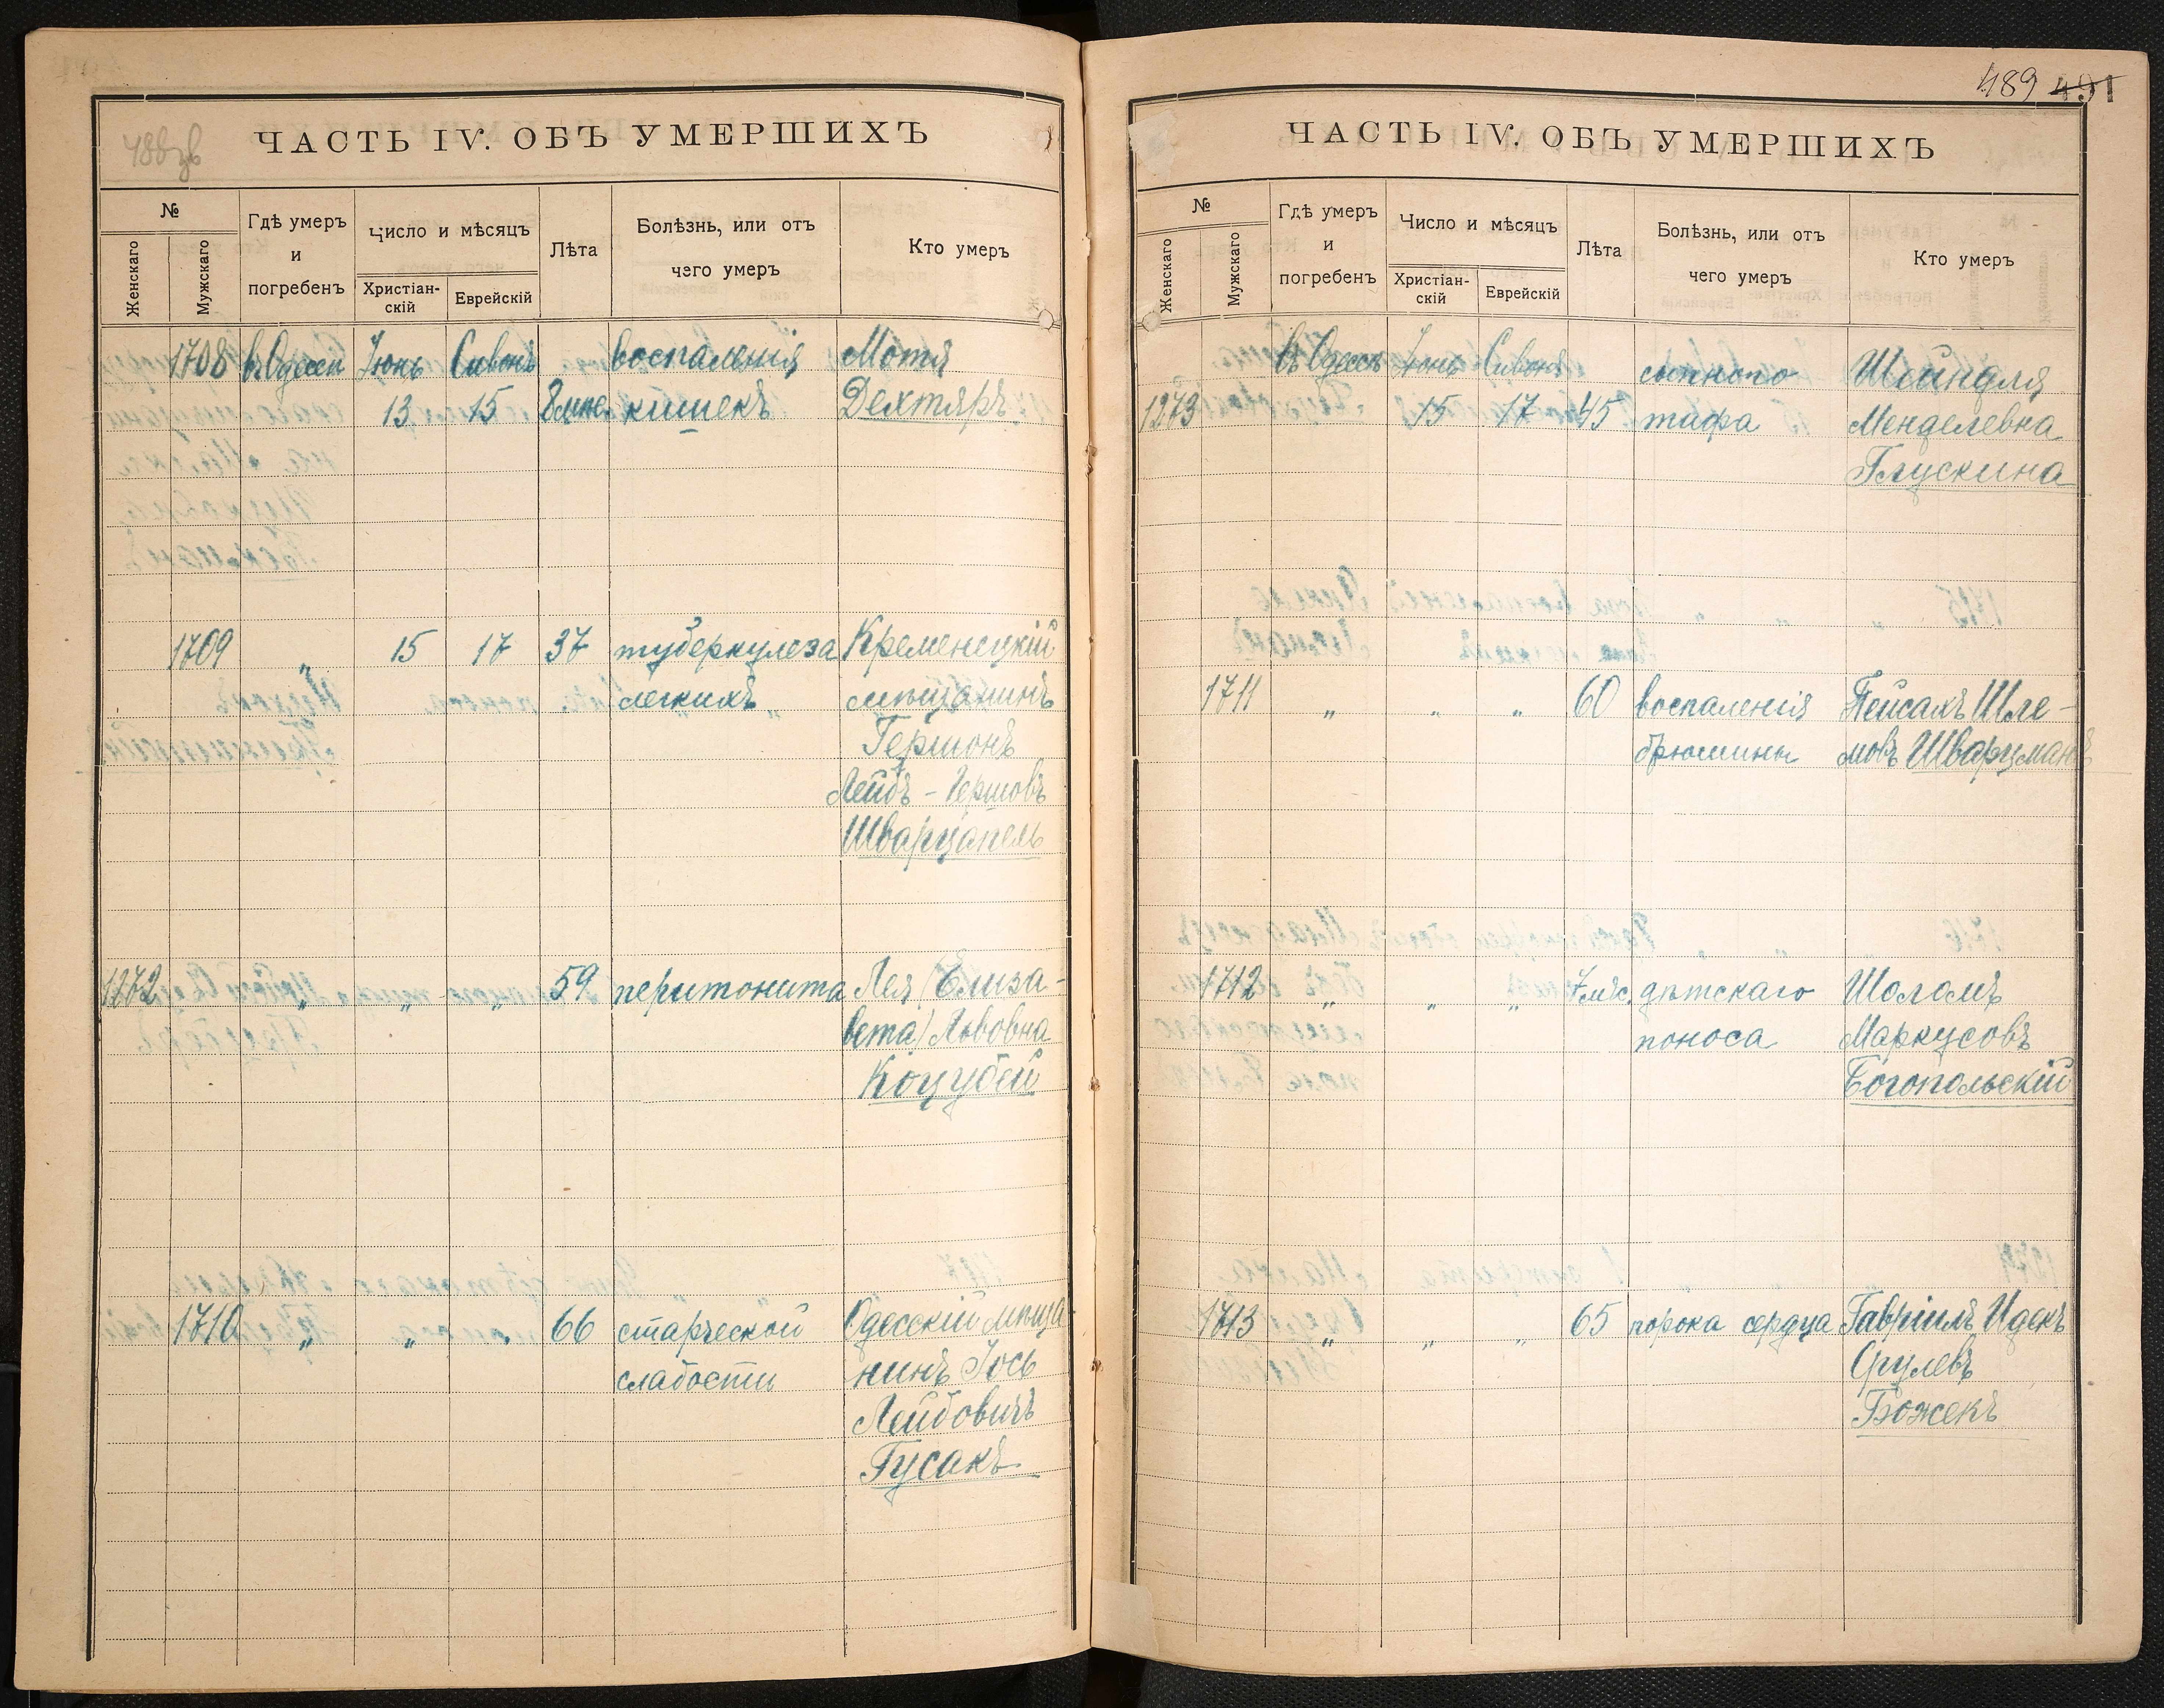 488 зв
ЧАСТЬ IV. ОБЪ УМЕРШИХЪ
№
Женскаго
Мужскаго
Гдѣ умеръ
и
погребенъ
Число и мѣсяцъ
Христіан-
скій
Еврейскій
Лѣта
Болѣзнь, или отъ
чего умеръ
Кто умеръ
1708 въ Одессѣ Іюнь Сивонъ воспаленія Мотя
13 15 8 мпс. кишекъ Дехтяръ
1709 „ 15 17 37 туберкулеза Кременецкій
легкихъ мѣщанинъ
Гершонъ
Лейбъ - Гершовъ
Шварцапель
1272 „ „ „ 59 перитонита Лея (Елиза-
вета) Львовна
Коцубей
1710 „ „ „ 66 старческой Одесскій мѣща
слабости нинъ Іось
Лейбовичъ
Гусакъ
489 491
ЧАСТЬ IV. ОБЪ УМЕРШИХЪ
№
Женскаго
Мужскаго
Гдѣ умеръ
и
погребенъ
Число и мѣсяцъ
Христіан-
скій
Еврейскій
Лѣта
Болѣзнь, или отъ
чего умеръ
Кто умеръ
въ Одессѣ Іюнь Сивонъ сыпного Шейндля
1273 15 17 45 тифа Менделевна
Глускина
1711 „ „ „ 60 воспаленія Пейсахъ Шле-
брюшины мовъ Шварцманъ
1712 „ „ „ 7 мѣс. дѣтскаго Шоломъ
поноса Маркусовъ
Богопольскій
1713 „ „ „ 65 порока сердца Гавріилъ Идекъ
Срулевъ
Божекъ